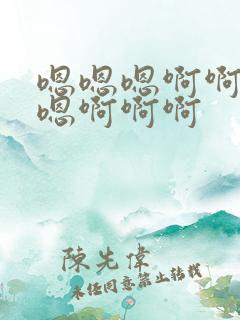 嗯嗯嗯啊啊
嗯啊啊啊
陳先偉
未经同意禁止转载